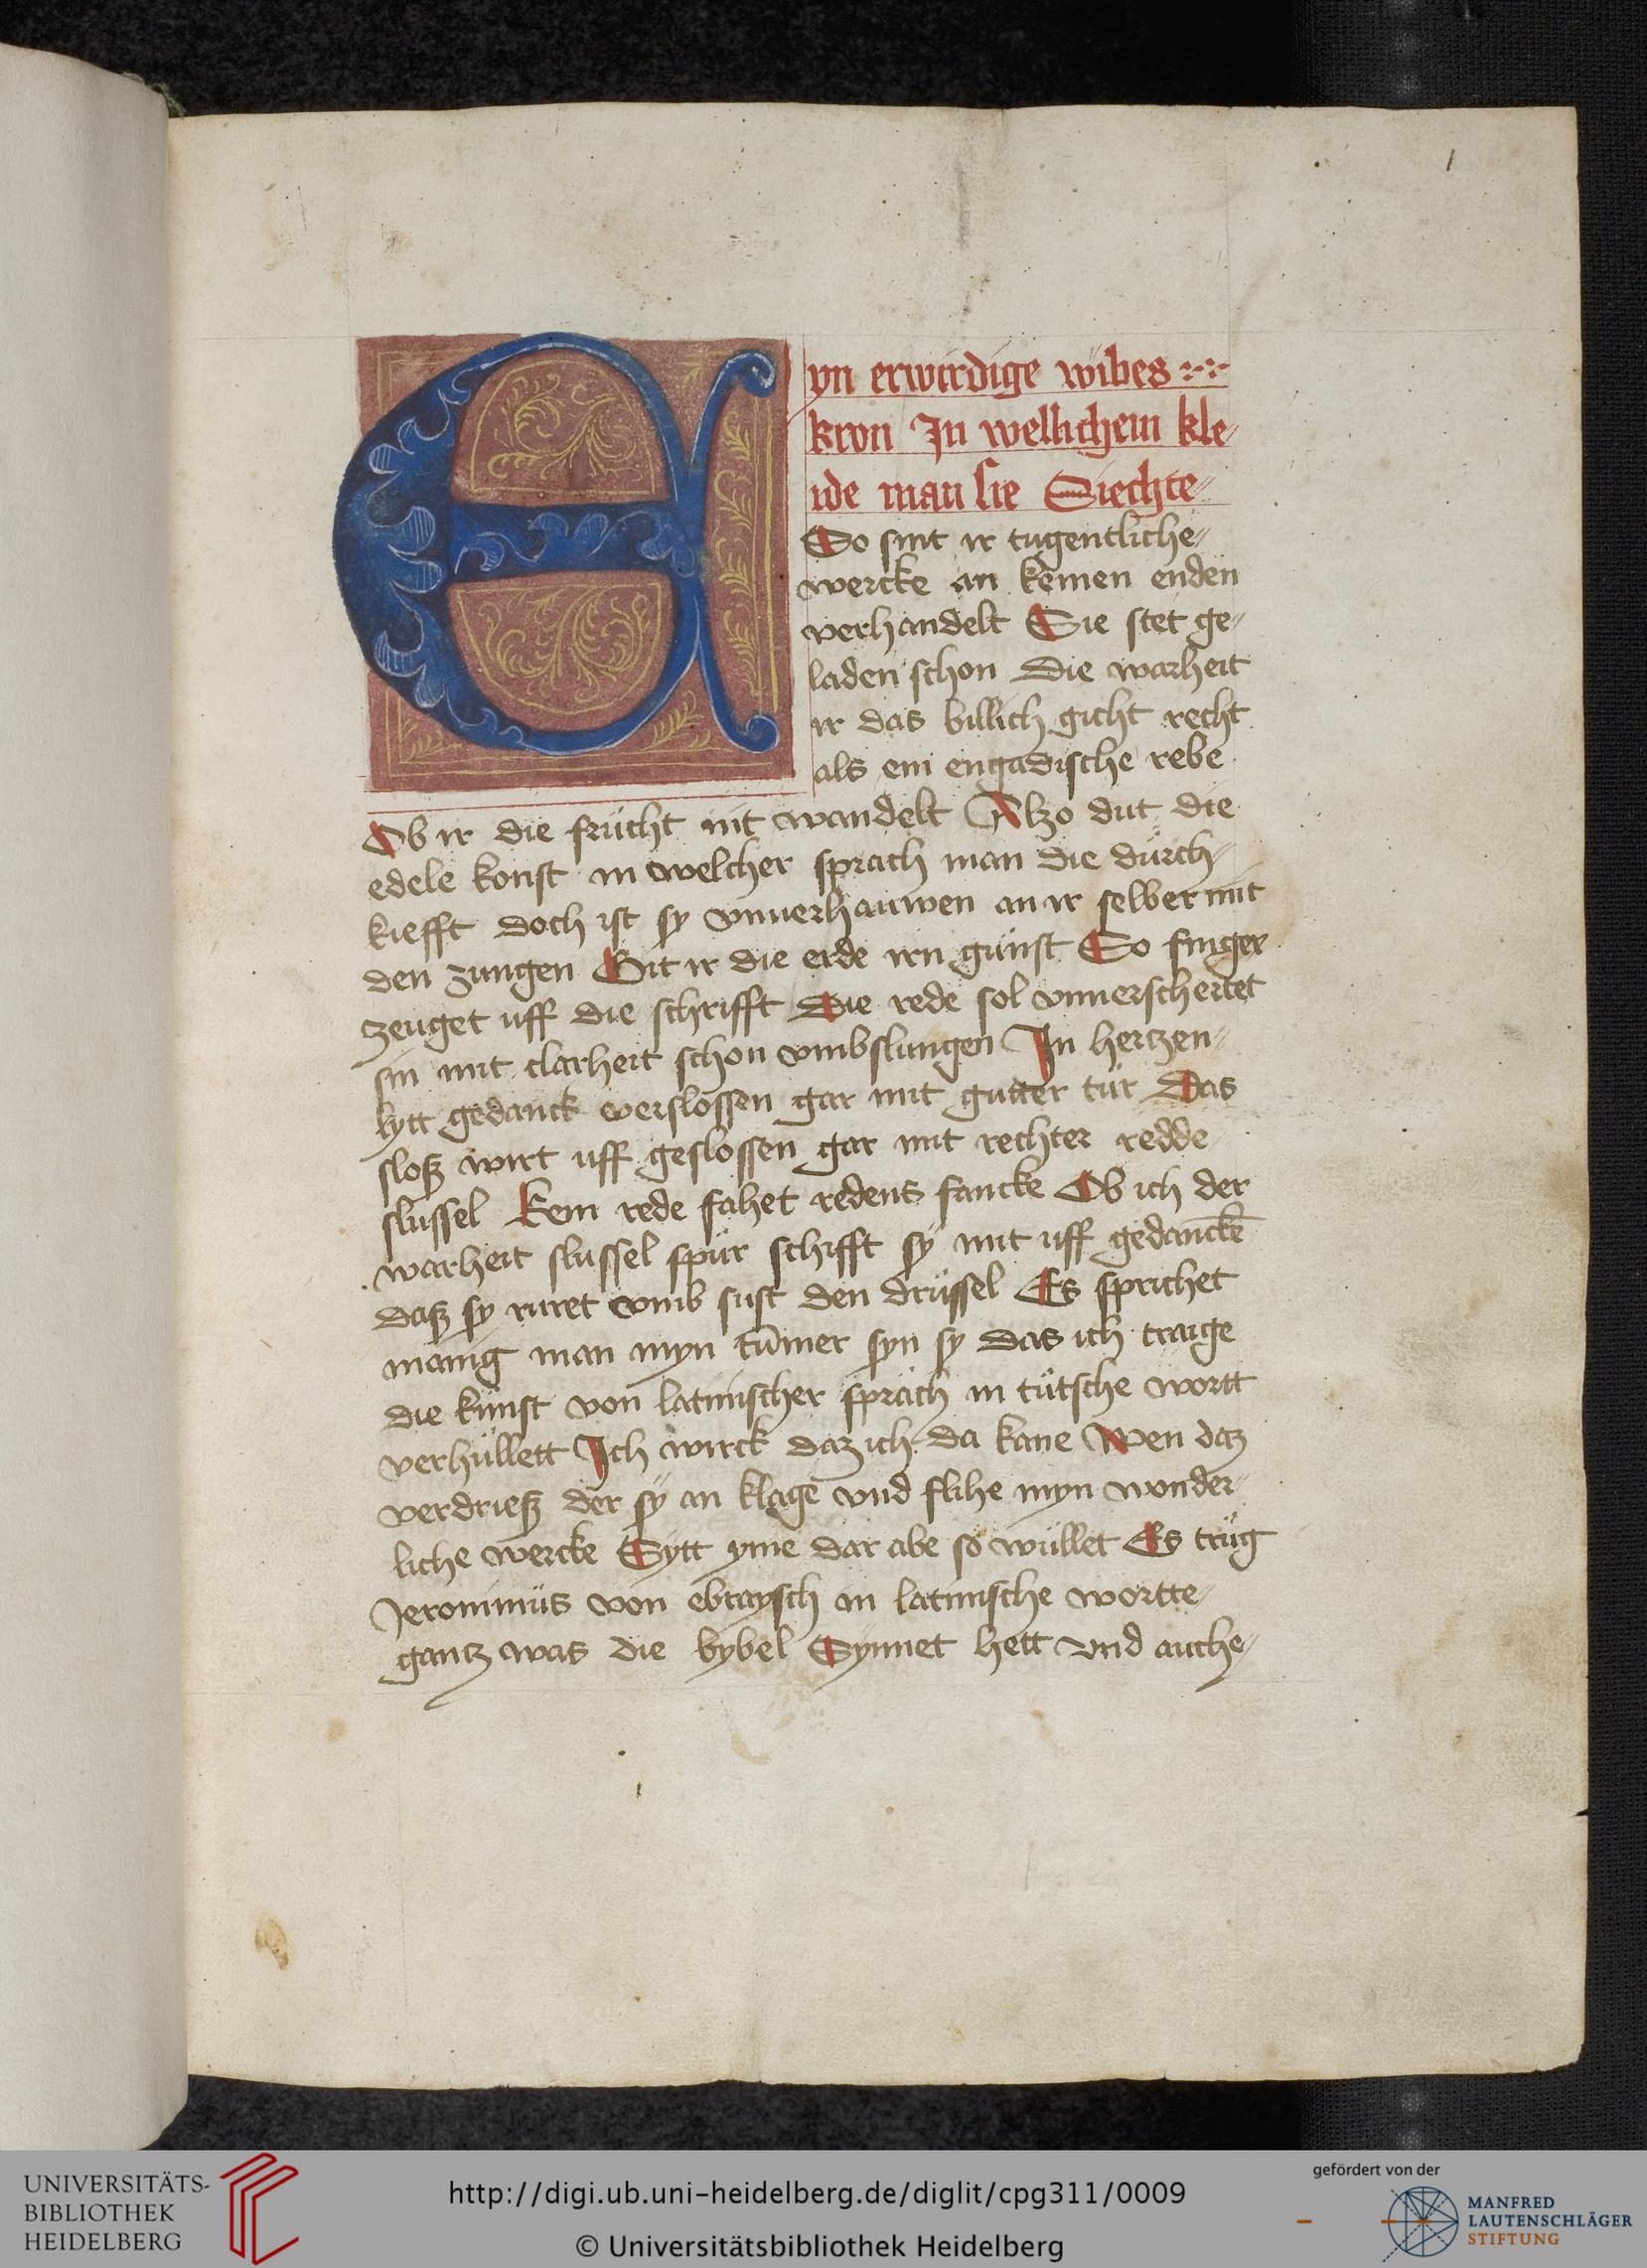 1
Eyn erwirdige wibes
kron In wellichem kle-
ide man sie Siechte
So sint ir tugentliche
wercke an keinen enden
verhandelt Sie stet ge-
laden schon Die warheit
ir das billich gicht recht
als ein engadische rebe
Ob ir die frücht nit wandelt Also dut die
edele konst in welcher sprach man die dürch-
kiefft doch ist sy vnuerhauwen an ir selber mit
den zungen Git ir die erde irn günst So finger
zeuget uff die schrifft Die rede sol vnuerschertet
sin mit clarheit schon vmbslungen In hertzen
lytt gedanck verslossen gar mit gutter tür Das
sloß wirt uff geslossen gar mit rechter redde
slussel Kein rede fahet redens fancke Ob ich der
warheit slussel spür schifft sy mit uff gedanckē
daß sy ruret vmb sust den drüssel Es sprichet
manig man myn tūmer syn sy das ich traige
die künst von latinischer sprach in tütsche wortt
verhüllett Ich wirck daz ich da kane Wen daz
verdrieß der sy an klage vnd flihe myn wonder-
liche wercke Sytt yme dar abe so wüllet Es trüg
Jeronimüs von ebraysch in latinische wortte
gantz was die bybel Synnet hett vnd auche
UNIVERSITÄTS-
BIBLIOTHEK
HEIDELBERG
http://digi.ub.uni-heidelberg.de/diglit/cpg311/0009
© Universitätsbibliothek Heidelberg
gefördert von der
MANFRED
LAUTENSCHLÄGER
STIFTUNG